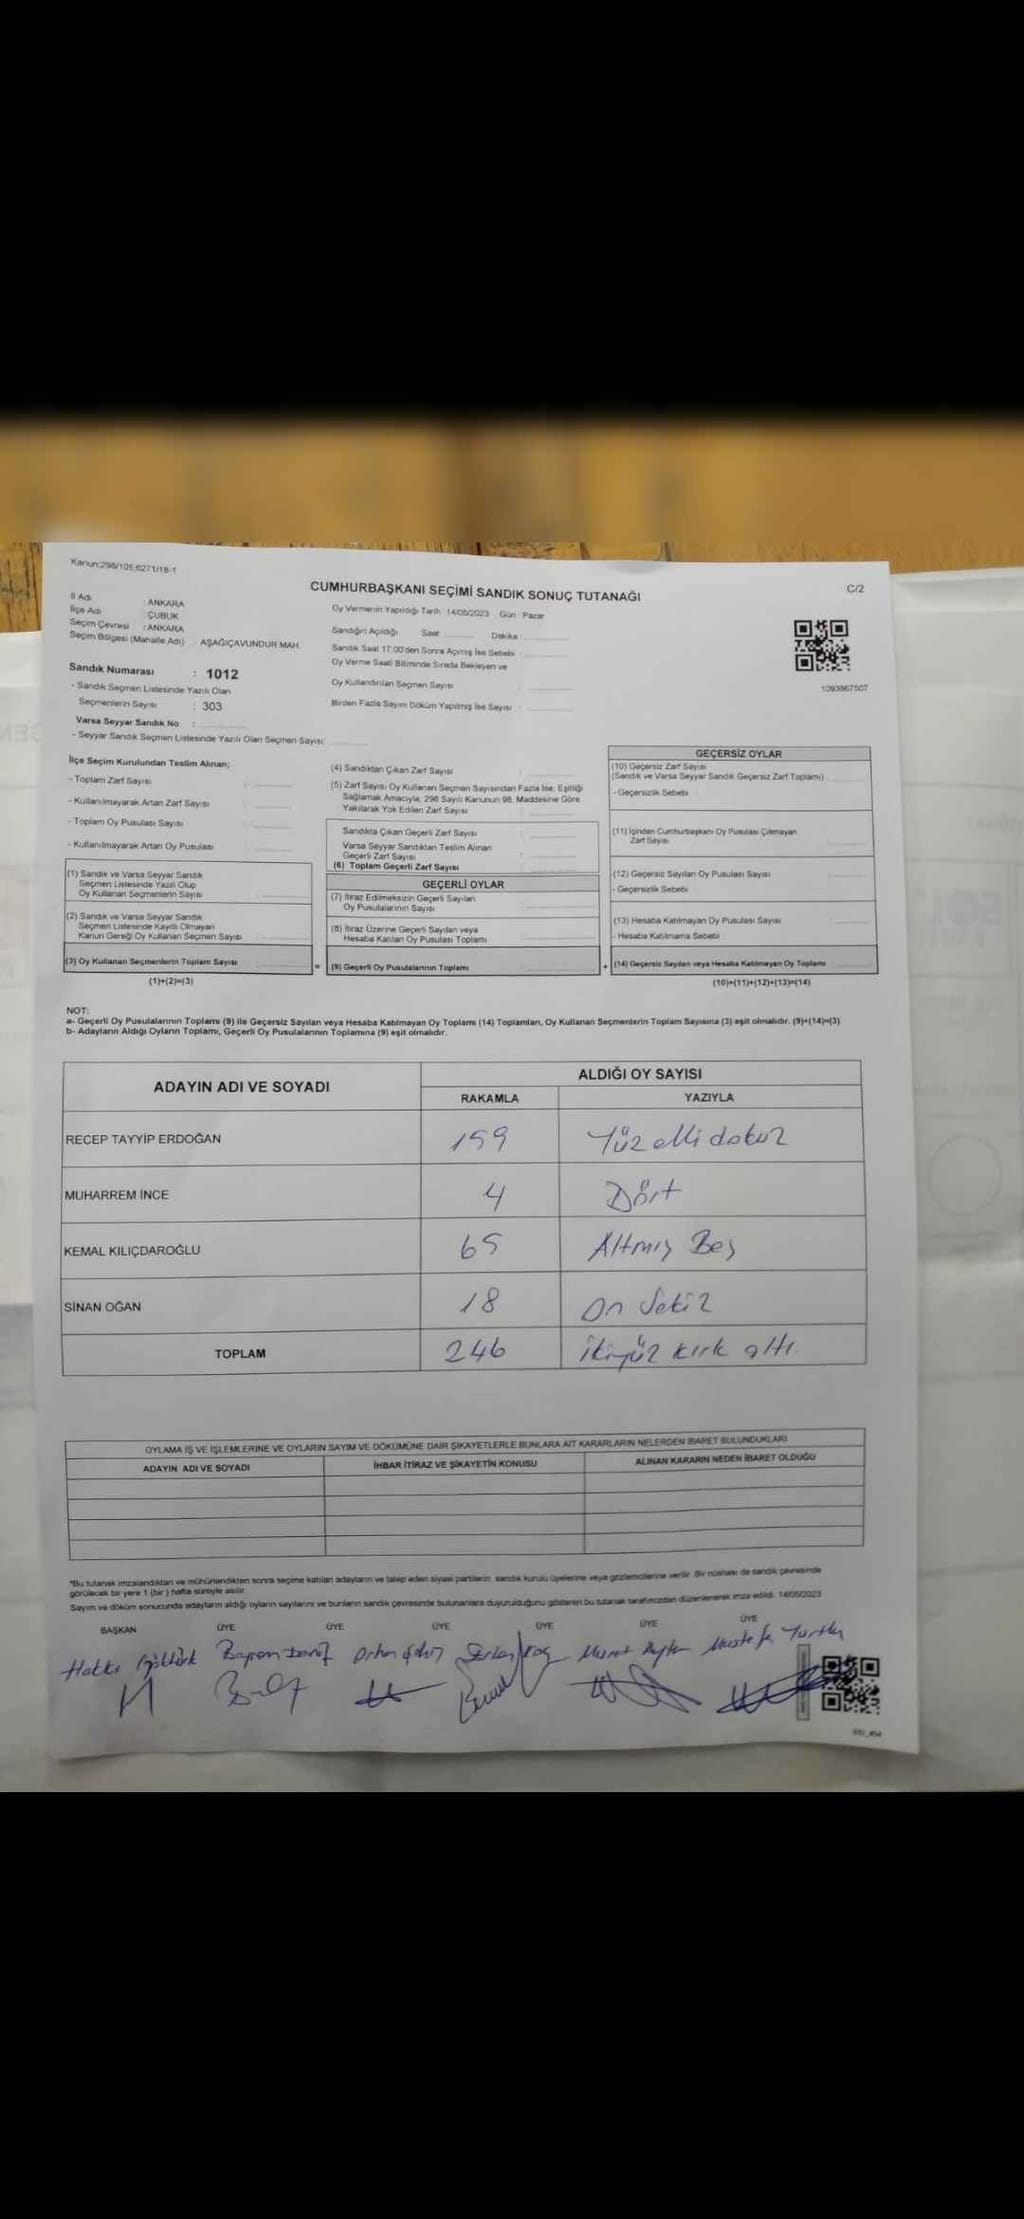 Kanun:298/105,6271/18-1
CUMHURBAŞKANI SEÇİMİ SANDIK SONUÇ TUTANAĞI
C/2
İl Adı : ANKARA
İlçe Adı : ÇUBUK
Seçim Çevresi : ANKARA
Seçim Bölgesi (Mahalle Adı) : AŞAĞIÇAVUNDUR MAH.
Sandık Numarası : 1012
- Sandık Seçmen Listesinde Yazılı Olan
Seçmenlerin Sayısı : 303
Varsa Seyyar Sandık No :
- Seyyar Sandık Seçmen Listesinde Yazılı Olan Seçmen Sayısı:
Oy Vermenin Yapıldığı Tarih : 14/05/2023 Gün : Pazar
Sandığın Açıldığı Saat Dakika :
Sandık Saat 17.00'den Sonra Açımış İse Sebebi :
Oy Verme Saati Bitiminde Sırada Bekleyen ve
Oy Kullandırılan Seçmen Sayısı :
Birden Fazla Sayım Döküm Yapılmış İse Sayısı :
1093867507
İlçe Seçim Kurulundan Teslim Alınan;
- Toplam Zarf Sayısı :
- Kullanılmayarak Artan Zarf Sayısı :
- Toplam Oy Pusulası Sayısı :
- Kullanılmayarak Artan Oy Pusulası :
(1) Sandık ve Varsa Seyyar Sandık
Seçmen Listesinde Yazılı Olup
Oy Kullanan Seçmenlerin Sayısı :
(2) Sandık ve Varsa Seyyar Sandık
Seçmen Listesinde Kayıtlı Olmayan
Kanun Gereği Oy Kullanan Seçmen Sayısı :
(3) Oy Kullanan Seçmenlerin Toplam Sayısı :
(1)+(2)=(3)
(4) Sandıktan Çıkan Zarf Sayısı :
(5) Zarf Sayısı Oy Kullanan Seçmen Sayısından Fazla İse, Eşitliği
Sağlamak Amacıyla, 298 Sayılı Kanunun 98. Maddesine Göre
Yakılarak Yok Edilen Zarf Sayısı :
Sandıkta Çıkan Geçerli Zarf Sayısı :
Varsa Seyyar Sandıktan Teslim Alınan
Geçerli Zarf Sayısı :
(6) Toplam Geçerli Zarf Sayısı :
GEÇERLİ OYLAR
(7) İtiraz Edilmeksizin Geçerli Sayılan
Oy Pusulalarının Sayısı :
(8) İtiraz Üzerine Geçerli Sayılan veya
Hesaba Katılan Oy Pusulası Toplamı :
= (9) Geçerli Oy Pusulalarının Toplamı :
GEÇERSİZ OYLAR
(10) Geçersiz Zarf Sayısı
(Sandık ve Varsa Seyyar Sandık Geçersiz Zarf Toplamı) :
- Geçersizlik Sebebi :
(11) İçinden Cumhurbaşkanı Oy Pusulası Çıkmayan
Zarf Sayısı :
(12) Geçersiz Sayılan Oy Pusulası Sayısı :
- Geçersizlik Sebebi :
(13) Hesaba Katılmayan Oy Pusulası Sayısı :
- Hesaba Katılmama Sebebi :
+ (14) Geçersiz Sayılan veya Hesaba Katılmayan Oy Toplamı :
(10)+(11)+(12)+(13)=(14)
NOT:
a- Geçerli Oy Pusulalarının Toplamı (9) ile Geçersiz Sayılan veya Hesaba Katılmayan Oy Toplamı (14) Toplamları, Oy Kullanan Seçmenlerin Toplam Sayısına (3) eşit olmalıdır. (9)+(14)=(3)
b- Adayların Aldığı Oyların Toplamı, Geçerli Oy Pusulalarının Toplamına (9) eşit olmalıdır.
ADAYIN ADI VE SOYADI
ALDIĞI OY SAYISI
RAKAMLA YAZIYLA
RECEP TAYYİP ERDOĞAN 159 Yüz elli dokuz
MUHARREM İNCE 4 Dört
KEMAL KILIÇDAROĞLU 65 Altmış Beş
SİNAN OĞAN 18 On Sekiz
TOPLAM 246 ikiyüz kırk altı.
OYLAMA İŞ VE İŞLEMLERİNE VE OYLARIN SAYIM VE DÖKÜMÜNE DAİR ŞİKAYETLERLE BUNLARA AİT KARARLARIN NELERDEN İBARET BULUNDUKLARI
ADAYIN ADI VE SOYADI İHBAR İTİRAZ VE ŞİKAYETİN KONUSU ALINAN KARARIN NEDEN İBARET OLDUĞU
*Bu tutanak imzalandıktan ve mühürlendikten sonra seçime katılan adayların ve talep eden siyasi partilerin sandık kurulu üyelerine veya gözlemcilerine verilir. Bir nüshası da sandık çevresinde
görülecek bir yere 1 (bir ) hafta süreyle asılır.
Sayım ve döküm sonucunda adayların aldığı oyların sayılarını ve bunların sandık çevresinde bulunanlara duyurulduğunu gösteren bu tutanak tarafımızdan düzenlenerek imza edildi. 14/05/2023
BAŞKAN ÜYE ÜYE ÜYE ÜYE ÜYE ÜYE
Hakkı Bayram Orhan Serkan Koç Murat Mustafa